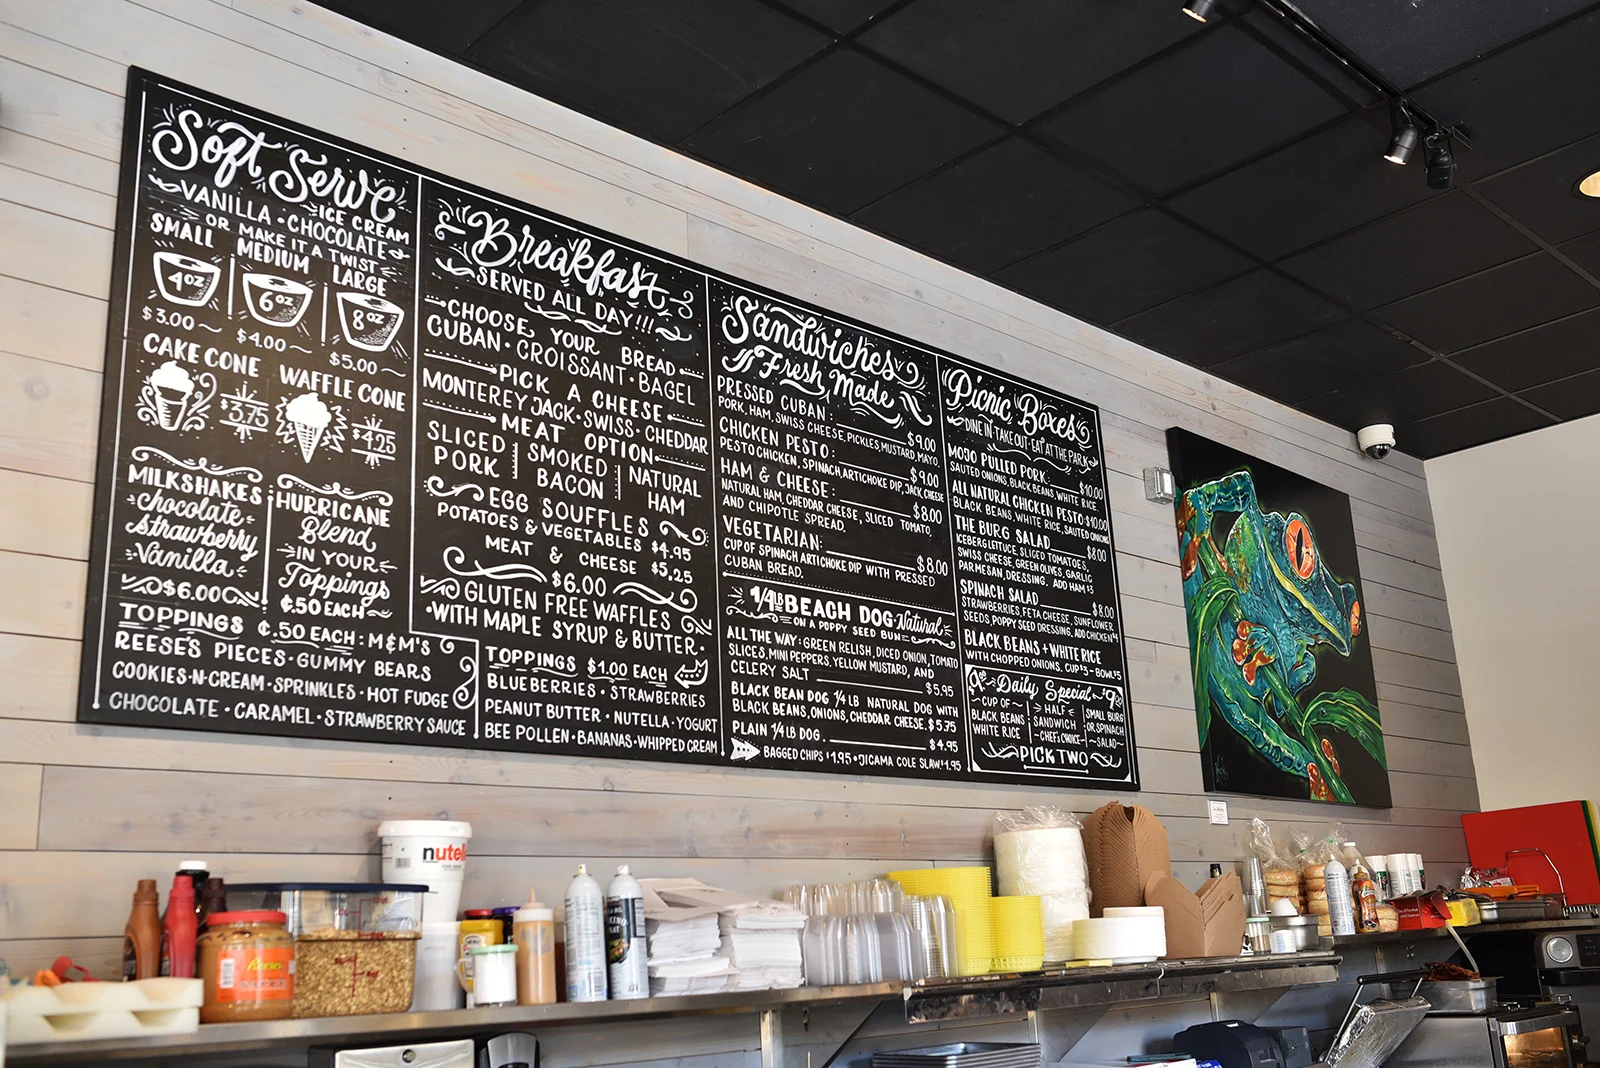 Soft Serve
ICE CREAM
VANILLA · CHOCOLATE
OR MAKE IT A TWIST
SMALL
MEDIUM
LARGE
4oz
6oz
8oz
$3.00
$4.00
$5.00
CAKE CONE
WAFFLE CONE
$3.75
$4.25
MILKSHAKES
chocolate
strawberry
Vanilla
$6.00
HURRICANE
Blend
IN YOUR
Toppings
¢.50 EACH
TOPPINGS ¢.50 EACH: M&M'S
REESE'S PIECES · GUMMY BEARS
COOKIES-N-CREAM · SPRINKLES · HOT FUDGE
CHOCOLATE · CARAMEL · STRAWBERRY SAUCE
Breakfast
SERVED ALL DAY!!!
CHOOSE YOUR BREAD
CUBAN · CROISSANT · BAGEL
PICK A CHEESE
MONTEREY JACK · SWISS · CHEDDAR
MEAT OPTION
SLICED PORK
SMOKED BACON
NATURAL HAM
EGG SOUFFLES
POTATOES & VEGETABLES $4.95
MEAT & CHEESE $5.25
$6.00
GLUTEN FREE WAFFLES
·WITH MAPLE SYRUP & BUTTER·
TOPPINGS $1.00 EACH
BLUEBERRIES · STRAWBERRIES
PEANUT BUTTER · NUTELLA · YOGURT
BEE POLLEN · BANANAS · WHIPPED CREAM
Sandwiches
Fresh Made
PRESSED CUBAN: $9.00
PORK, HAM, SWISS CHEESE, PICKLES, MUSTARD, MAYO.
CHICKEN PESTO: $9.00
PESTO CHICKEN, SPINACH ARTICHOKE DIP, JACK CHEESE
HAM & CHEESE: $8.00
NATURAL HAM, CHEDDAR CHEESE, SLICED TOMATO,
AND CHIPOTLE SPREAD.
VEGETARIAN: $8.00
CUP OF SPINACH ARTICHOKE DIP WITH PRESSED
CUBAN BREAD.
1/4 LB BEACH DOG · Natural
ON A POPPY SEED BUN
ALL THE WAY: GREEN RELISH, DICED ONION, TOMATO
SLICES, MINI PEPPERS, YELLOW MUSTARD, AND
CELERY SALT $5.95
BLACK BEAN DOG 1/4 LB NATURAL DOG WITH
BLACK BEANS, ONIONS, CHEDDAR CHEESE. $5.75
PLAIN 1/4 LB DOG. $4.95
BAGGED CHIPS $1.95 · JICAMA COLE SLAW $1.95
Picnic Boxes
DINE IN · TAKE OUT · EAT AT THE PARK
MOJO PULLED PORK: $10.00
SAUTED ONIONS, BLACK BEANS, WHITE RICE
ALL NATURAL CHICKEN PESTO: $10.00
BLACK BEANS, WHITE RICE, SAUTED ONIONS
THE BURG SALAD $8.00
ICEBERG LETTUCE, SLICED TOMATOES,
SWISS CHEESE, GREEN OLIVES, GARLIC
PARMESAN, DRESSING. ADD HAM $3
SPINACH SALAD $8.00
STRAWBERRIES, FETA CHEESE, SUNFLOWER
SEEDS, POPPY SEED DRESSING, ADD CHICKEN $4
BLACK BEANS + WHITE RICE
WITH CHOPPED ONIONS. CUP $3 - BOWL $5
Daily Special
CUP OF
BLACK BEANS
WHITE RICE
HALF
SANDWICH
CHEF'S CHOICE
SMALL BURG
OR SPINACH
SALAD
PICK TWO
nutella
Reese's